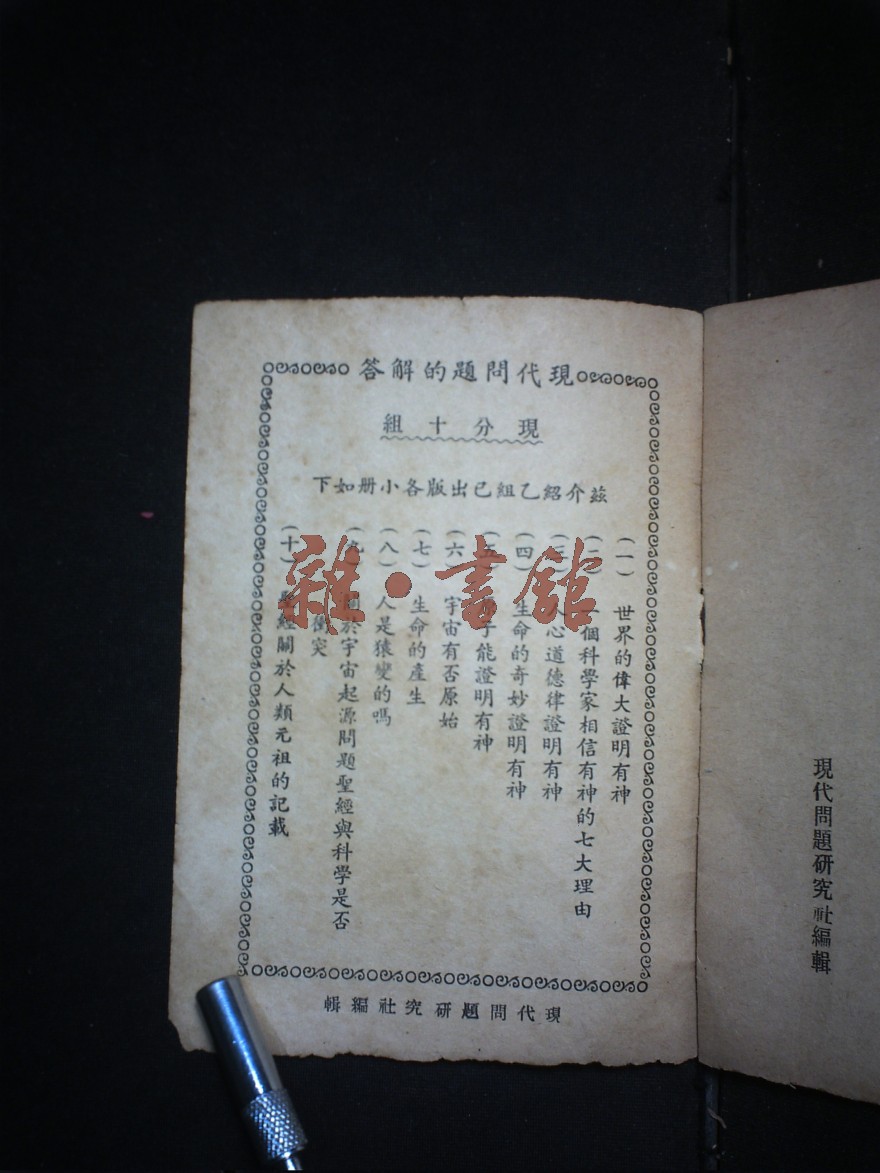 現代問題的解答
現分十組
茲介紹乙組已出版各小册如下
(一) 世界的偉大證明有神
(二) 一個科學家相信有神的七大理由
(三) 人心道德律證明有神
(四) 生命的奇妙證明有神
(五) 子能證明有神
(六) 宇宙有否原始
(七) 生命的產生
(八) 人是猿變的嗎
(九) 關於宇宙起源問題聖經與科學是否
衝突
(十) 聖經關於人類元祖的記載
現代問題研究社編輯
現代問題研究社編輯
雜·書館